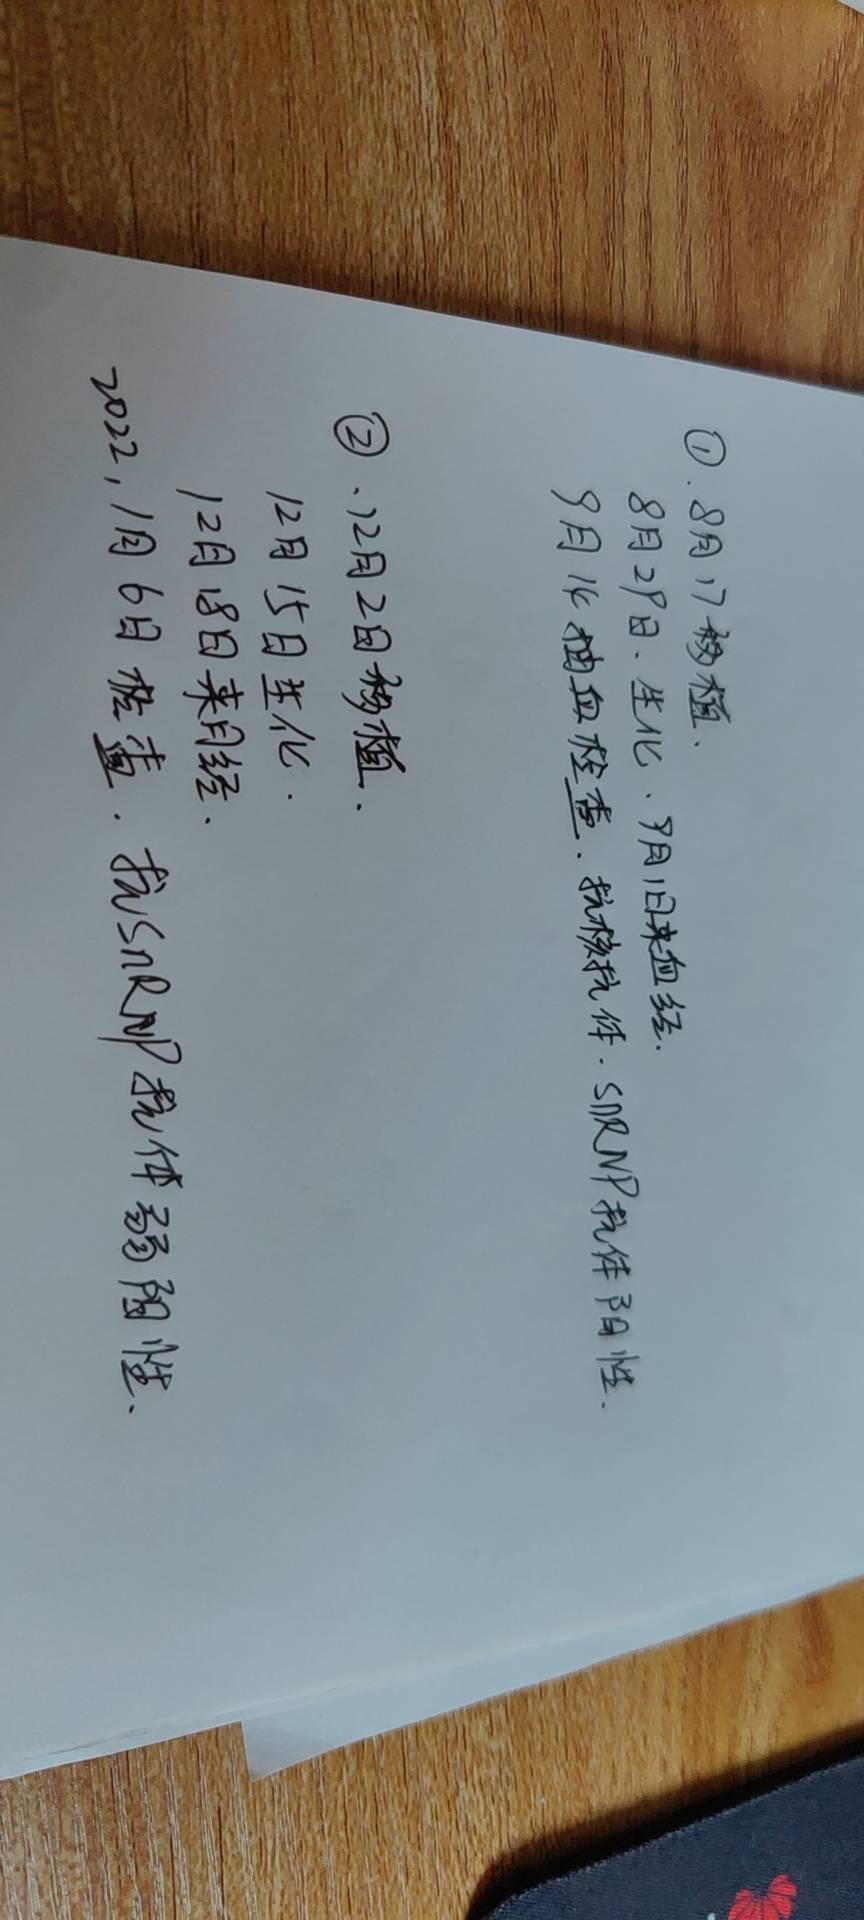 ①.8月17移植.
8月29日、生化、9月1日来血经.
9月14抽血检查.抗核抗体.SnRNP抗体阳性.
②、12月2日移植.
12月15日生化.
12月18日来月经.
2022,1月6日检查.抗SnRNP抗体弱阳性、